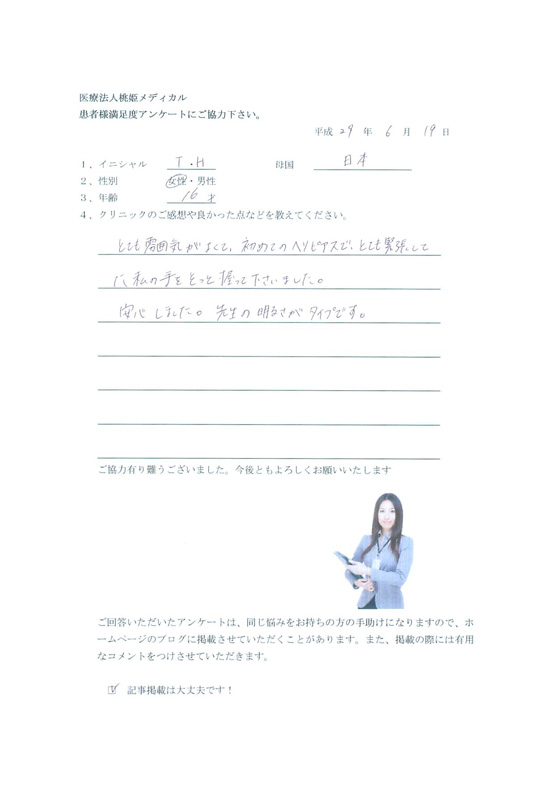 医療法人桃姫メディカル
患者様満足度アンケートにご協力下さい。
平成 29 年 6 月 19 日
1、イニシャル T.H 母国 日本
2、性別 女性・男性
3、年齢 16 才
4、クリニックのご感想や良かった点などを教えてください。
とても雰囲気がよくて、初めてのヘソピアスで、とても緊張して
私の手をそっと握って下さいました。
安心しました。先生の明るさがタイプです。
ご協力有り難うございました。今後ともよろしくお願いいたします
ご回答いただいたアンケートは、同じ悩みをお持ちの方の手助けになりますので、ホ
ームページのブログに掲載させていただくことがあります。また、掲載の際には有用
なコメントをつけさせていただきます。
記事掲載は大丈夫です！